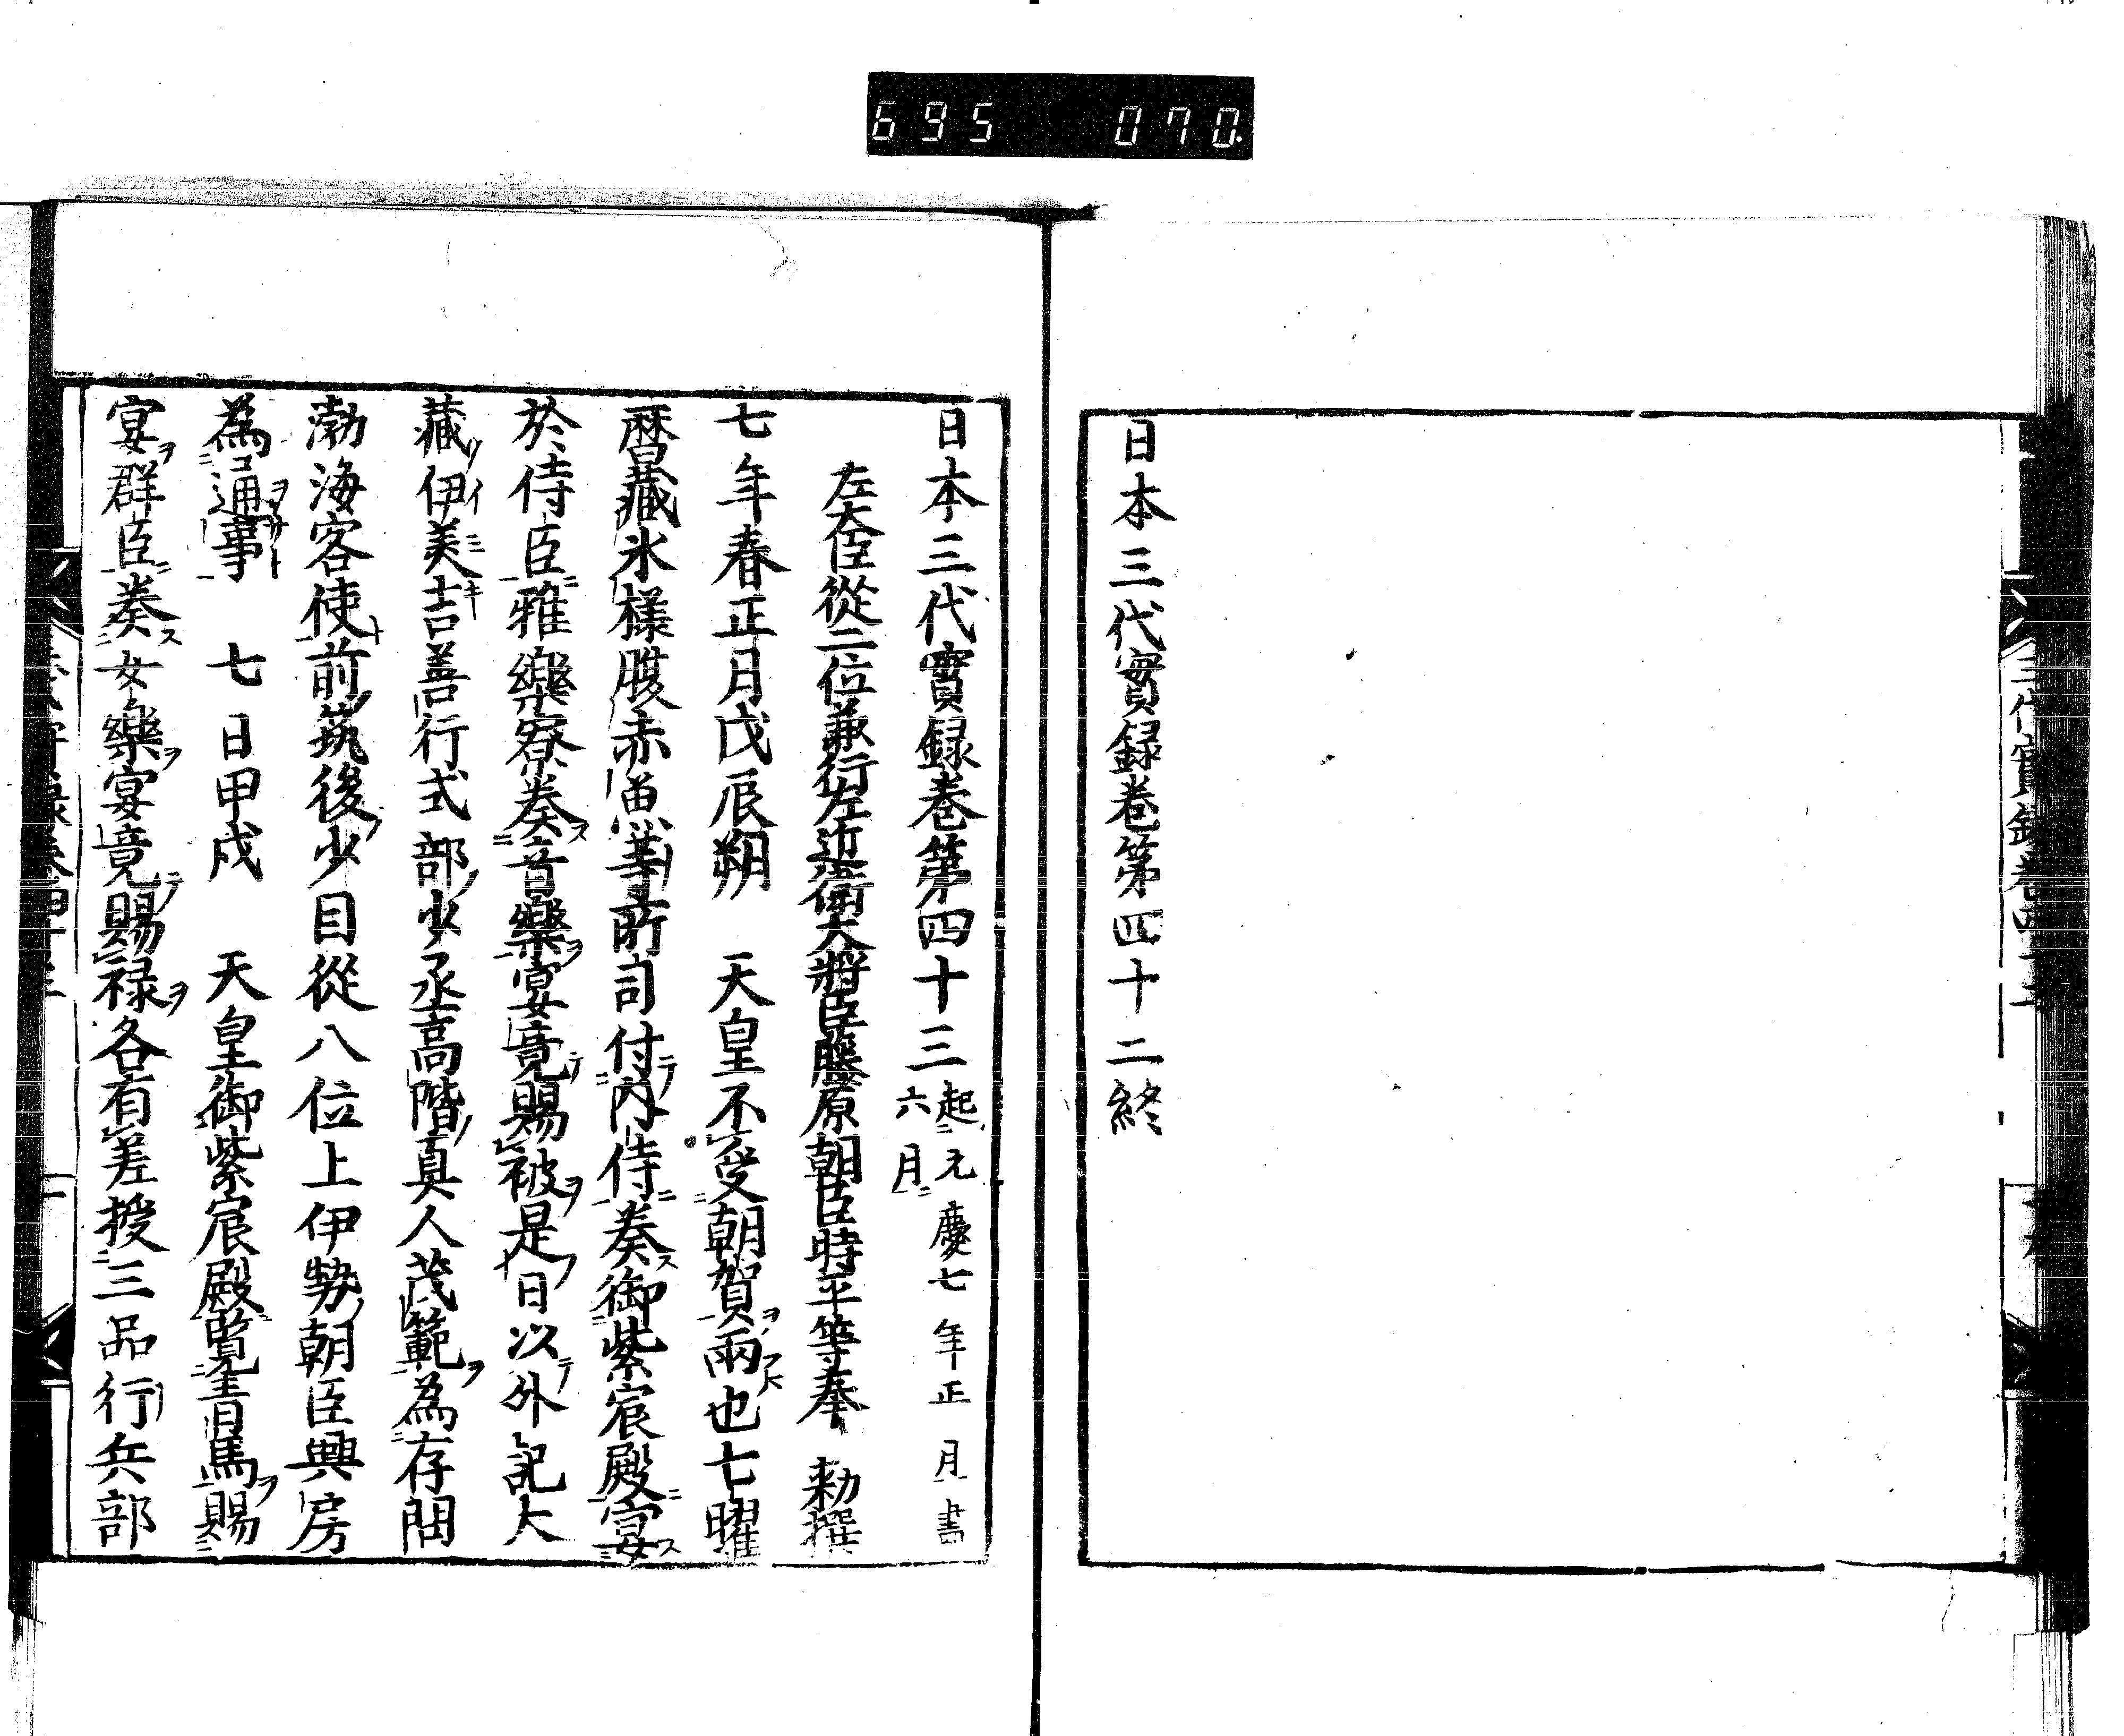 695 070
日本三代實録卷第四十二終
日本三代實録卷第四十三 起元慶七年正月盡六月
左大臣從二位兼行左近衛大將臣藤原朝臣時平等奉 勅撰
七年春正月戊辰朔 天皇不受朝賀雨也七曜
暦藏氷様腹赤魚等所司付內侍奏御紫宸殿宴
於侍臣雅樂寮奏音樂宴竟賜被是日以外記大
藏伊美吉善行式部少丞高階真人茂範為存問
渤海客使前筑後少目從八位上伊勢朝臣興房
為通事 七日甲戌 天皇御紫宸殿覽青馬賜
宴群臣奏女樂宴竟賜禄各有差授三品行兵部